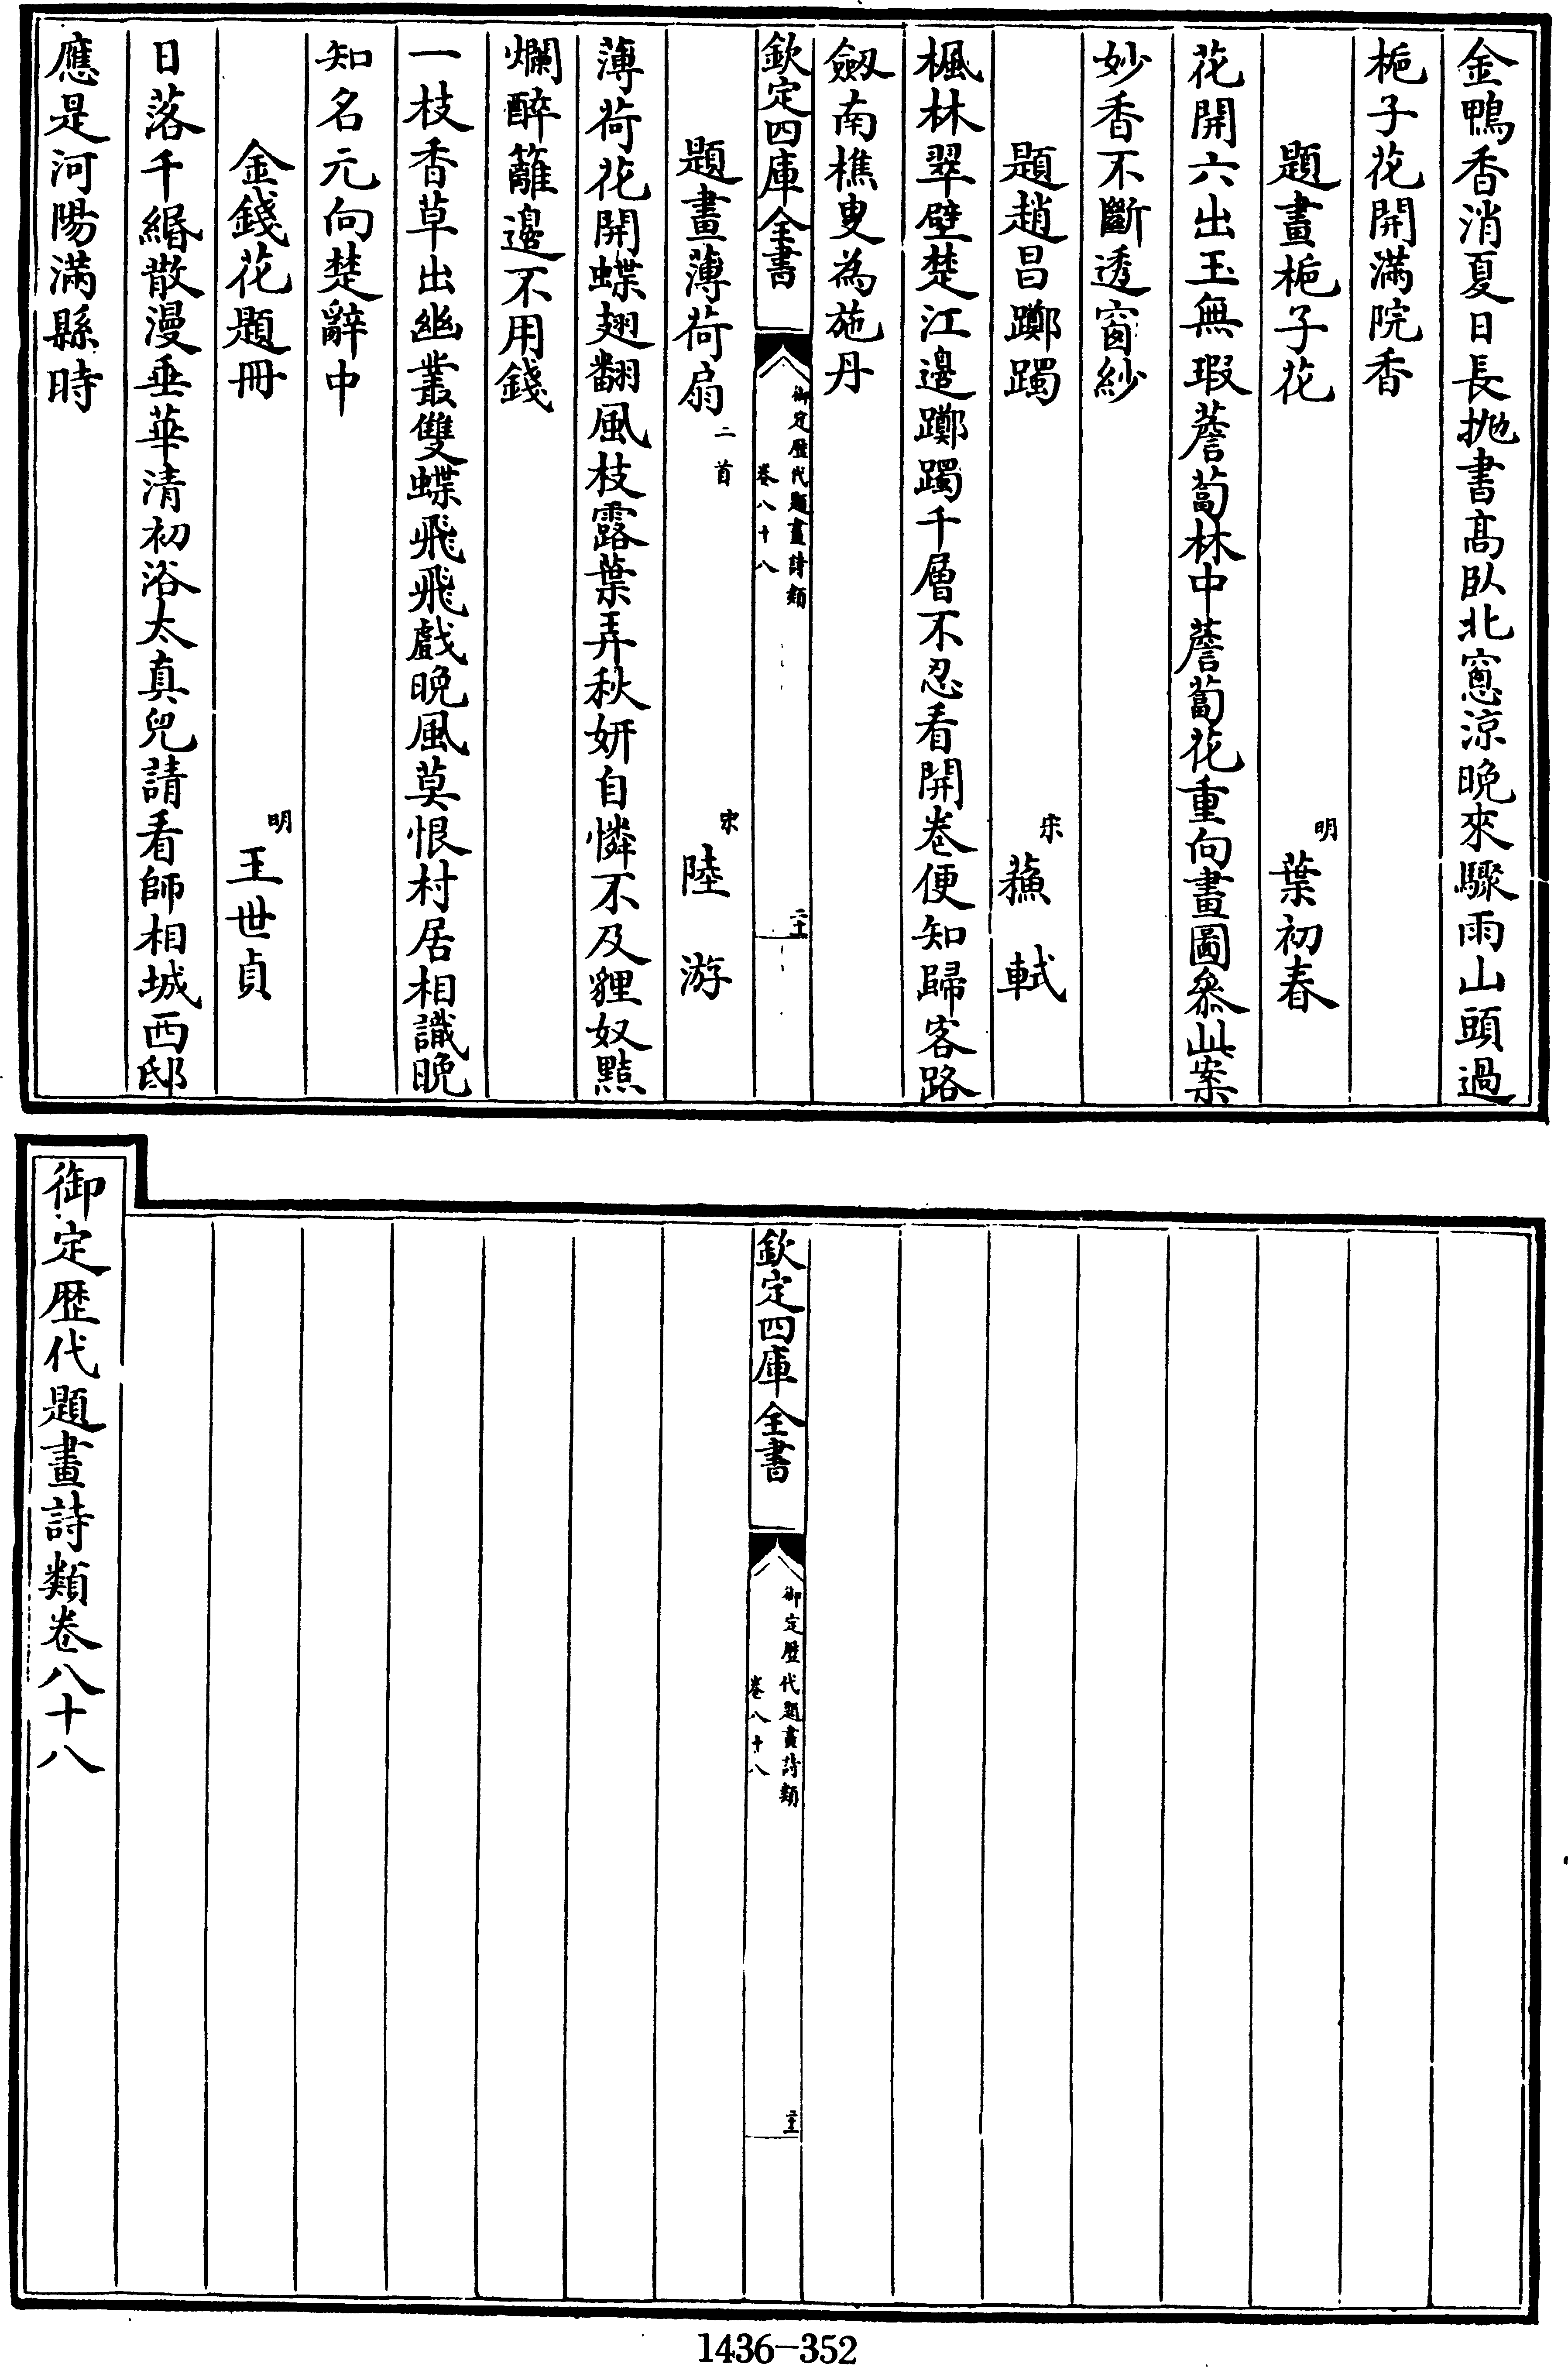 金鴨香消夏日長抛書髙臥北窓涼晩來驟雨山頭過
梔子花開滿院香
題畫梔子花
明
葉初春
花開六出玉無瑕薝蔔林中薝蔔花重向畫圖叅此案
妙香不斷透窗紗
題趙昌躑躅
宋
蘓軾
楓林翠壁楚江邉躑躅千層不忍看開卷便知歸客路
劔南樵叟為施丹
欽定四庫全書
御定歴代題畫詩類
卷八十八
二十一
題畫薄荷扇
二首
宋
陸游
薄荷花開蝶翅翻風枝露葉弄秋妍自憐不及貍奴黠
爛醉籬邉不用錢
一枝香草出幽叢雙蝶飛飛戲晩風莫恨村居相識晩
知名元向楚辭中
金錢花題冊
明
王世貞
日落千緡散漫垂華清初浴太真兒請看師相城西邸
應是河陽滿縣時
欽定四庫全書
御定歴代題畫詩類
卷八十八
二十二
御定歴代題畫詩類卷八十八
1436-352